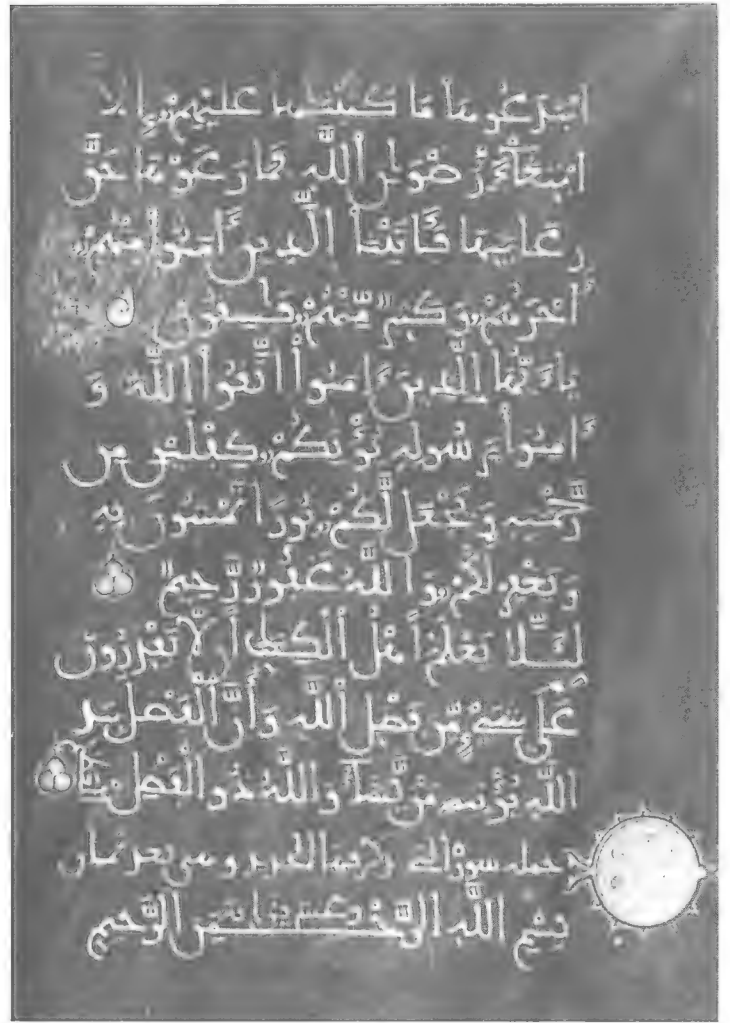 ابتدعوها ما كتبنها عليهم إلا
ابتغاء رضون الله فما رعوها حق
رعايتها فاتينا الذين ءامنوا منهم
أجرهم وكثير منهم فسقون
يأيها الذين ءامنوا اتقوا الله و
ءامنوا برسوله يؤتكم كفلين من
رحمته ويجعل لكم نورا تمشون به
ويغفر لكم والله غفور رحيم
ليلا يعلم أهل الكتب ألا يقدرون
على شيء من فضل الله وأن الفضل بيد
الله يؤتيه من يشاء والله ذو الفضل
جملة سورة
بسم الله الرحمن الرحيم